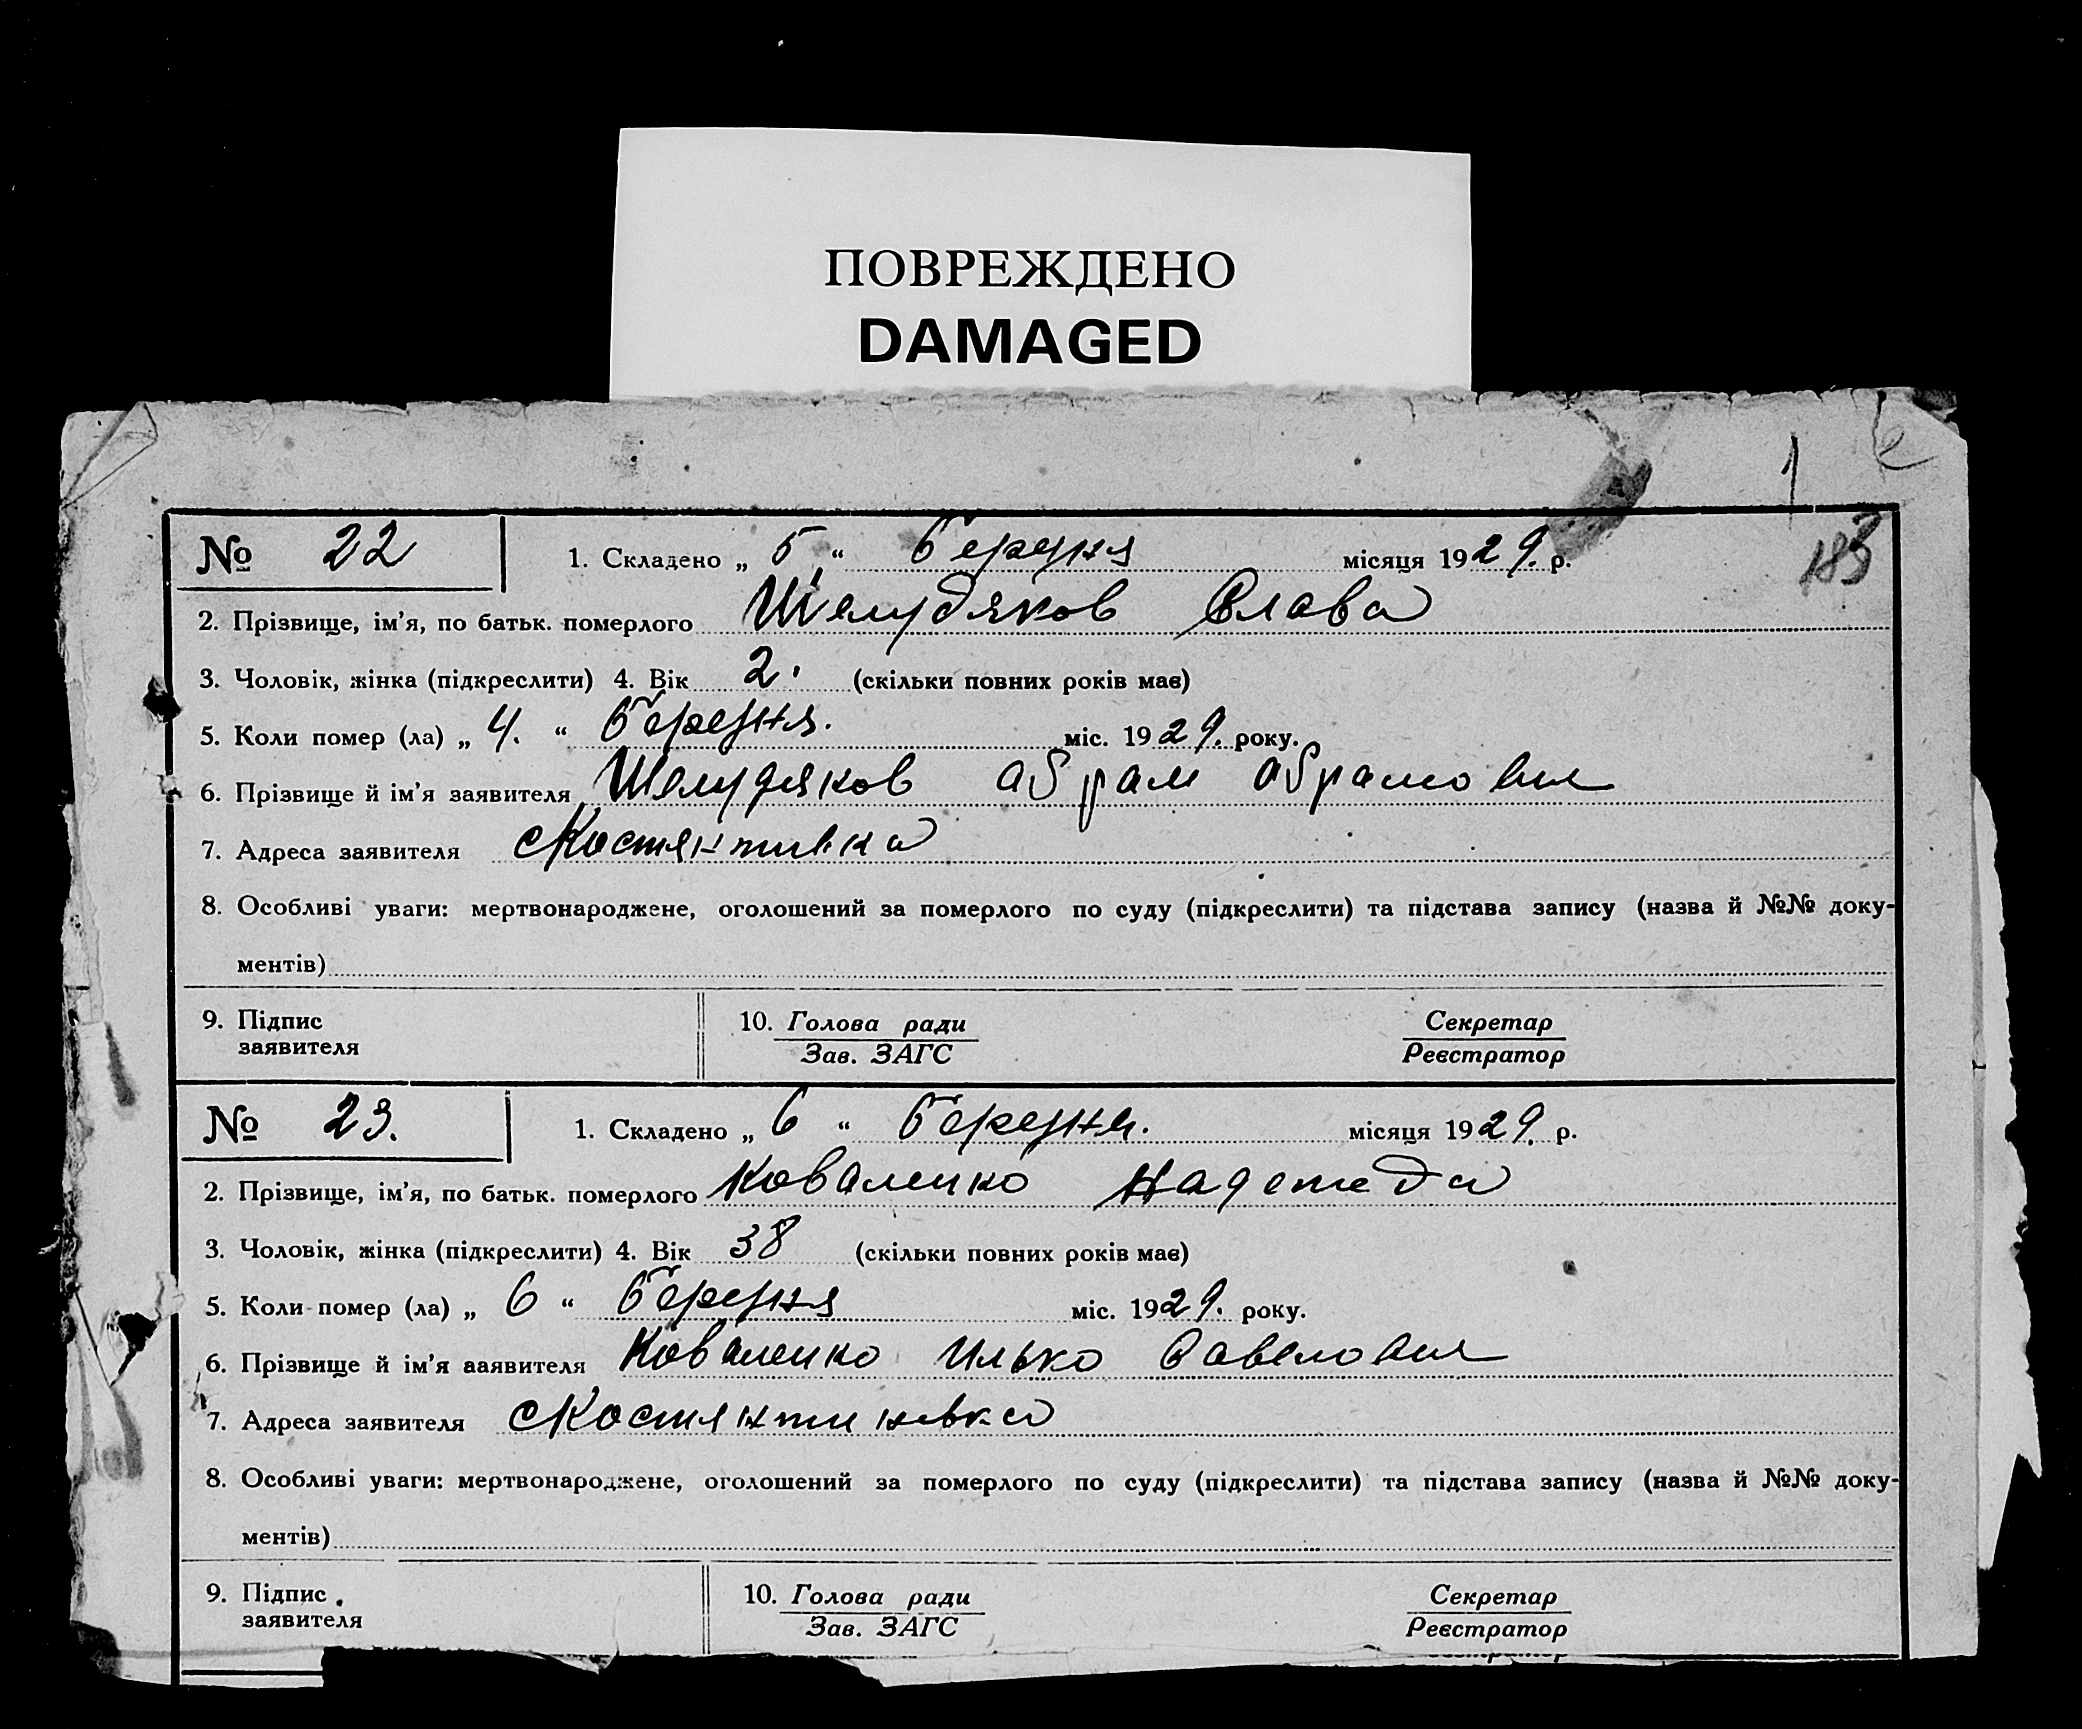 ПОВРЕЖДЕНО
DAMAGED
1
183
№ 22 1. Складено „ 5 “ березня місяця 1929. р.
2. Прізвище, ім’я, по батьк. померлого Шелудяков Слава
3. Чоловік, жінка (підкреслити) 4. Вік 2. (скільки повних років має)
5. Коли помер (ла) „ 4. “ березня. міс. 1929. року.
6. Прізвище й ім’я заявителя Шелудяков Абрам Абрамович
7. Адреса заявителя с Костянтивка
8. Особливі уваги: мертвонароджене, оголошений за померлого по суду (підкреслити) та підстава запису (назва й №№ доку-
ментів)
9. Підпис 10. Голова ради Секретар
заявителя Зав. ЗАГС Реєстратор
№ 23. 1. Складено „ 6 “ березня. місяця 1929. р.
2. Прізвище, ім’я, по батьк. померлого Коваленко Надежда
3. Чоловік, жінка (підкреслити) 4. Вік 38 (скільки повних років має)
5. Коли помер (ла) „ 6 “ березня міс. 1929. року.
6. Прізвище й ім’я ааявителя Коваленко Илько Савелович
7. Адреса заявителя с Костянтинвка
8. Особливі уваги: мертвонароджене, оголошений за померлого по суду (підкреслити) та підстава запису (назва й №№ доку-
ментів)
9. Підпис 10. Голова ради Секретар
заявителя Зав. ЗАГС Реєстратор